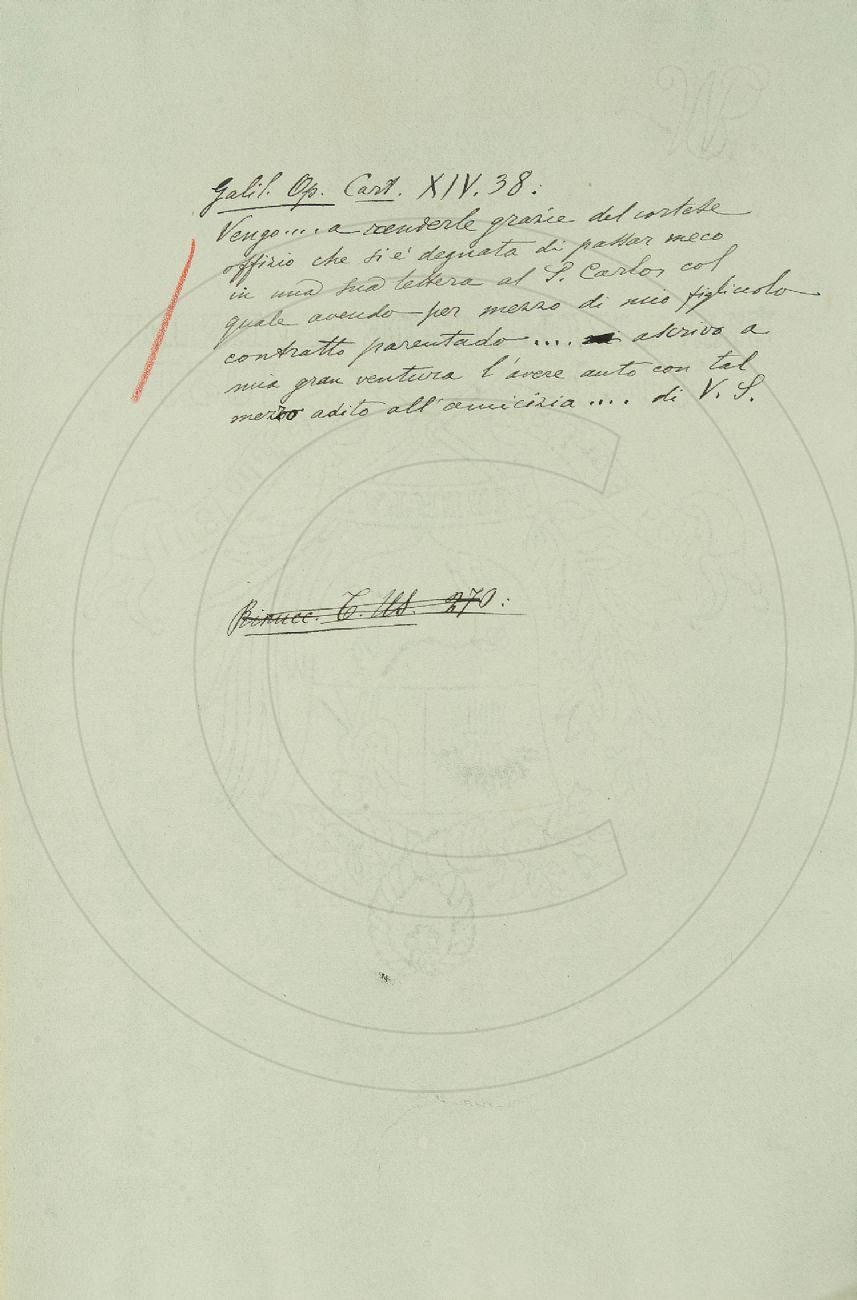 Galil. Op. Cart. XIV. 38:
Vengo.... a renderle grazie del cortese
offizio che si è degnata di passar meco
in una sua lettera al S. Carlo, col
quale avendo per mezzo di mio figliuolo
contratto parentado .... ascrivo a
mia gran ventura l'avere auto con tal
mezzo adito all'amicizia .... di V. S.
Rinucc. T. Us. 270: